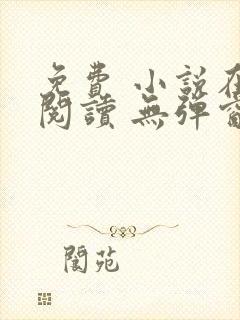 免費 小說在
閱讀 無彈窗
閬苑